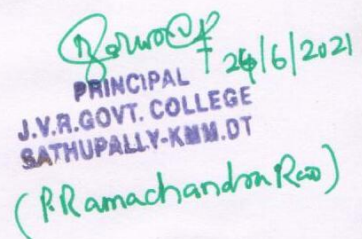 24/6/2021
PRINCIPAL
J.V.R.GOVT. COLLEGE
SATHUPALLY-KMM.DT
(P.Ramachandra Rao)